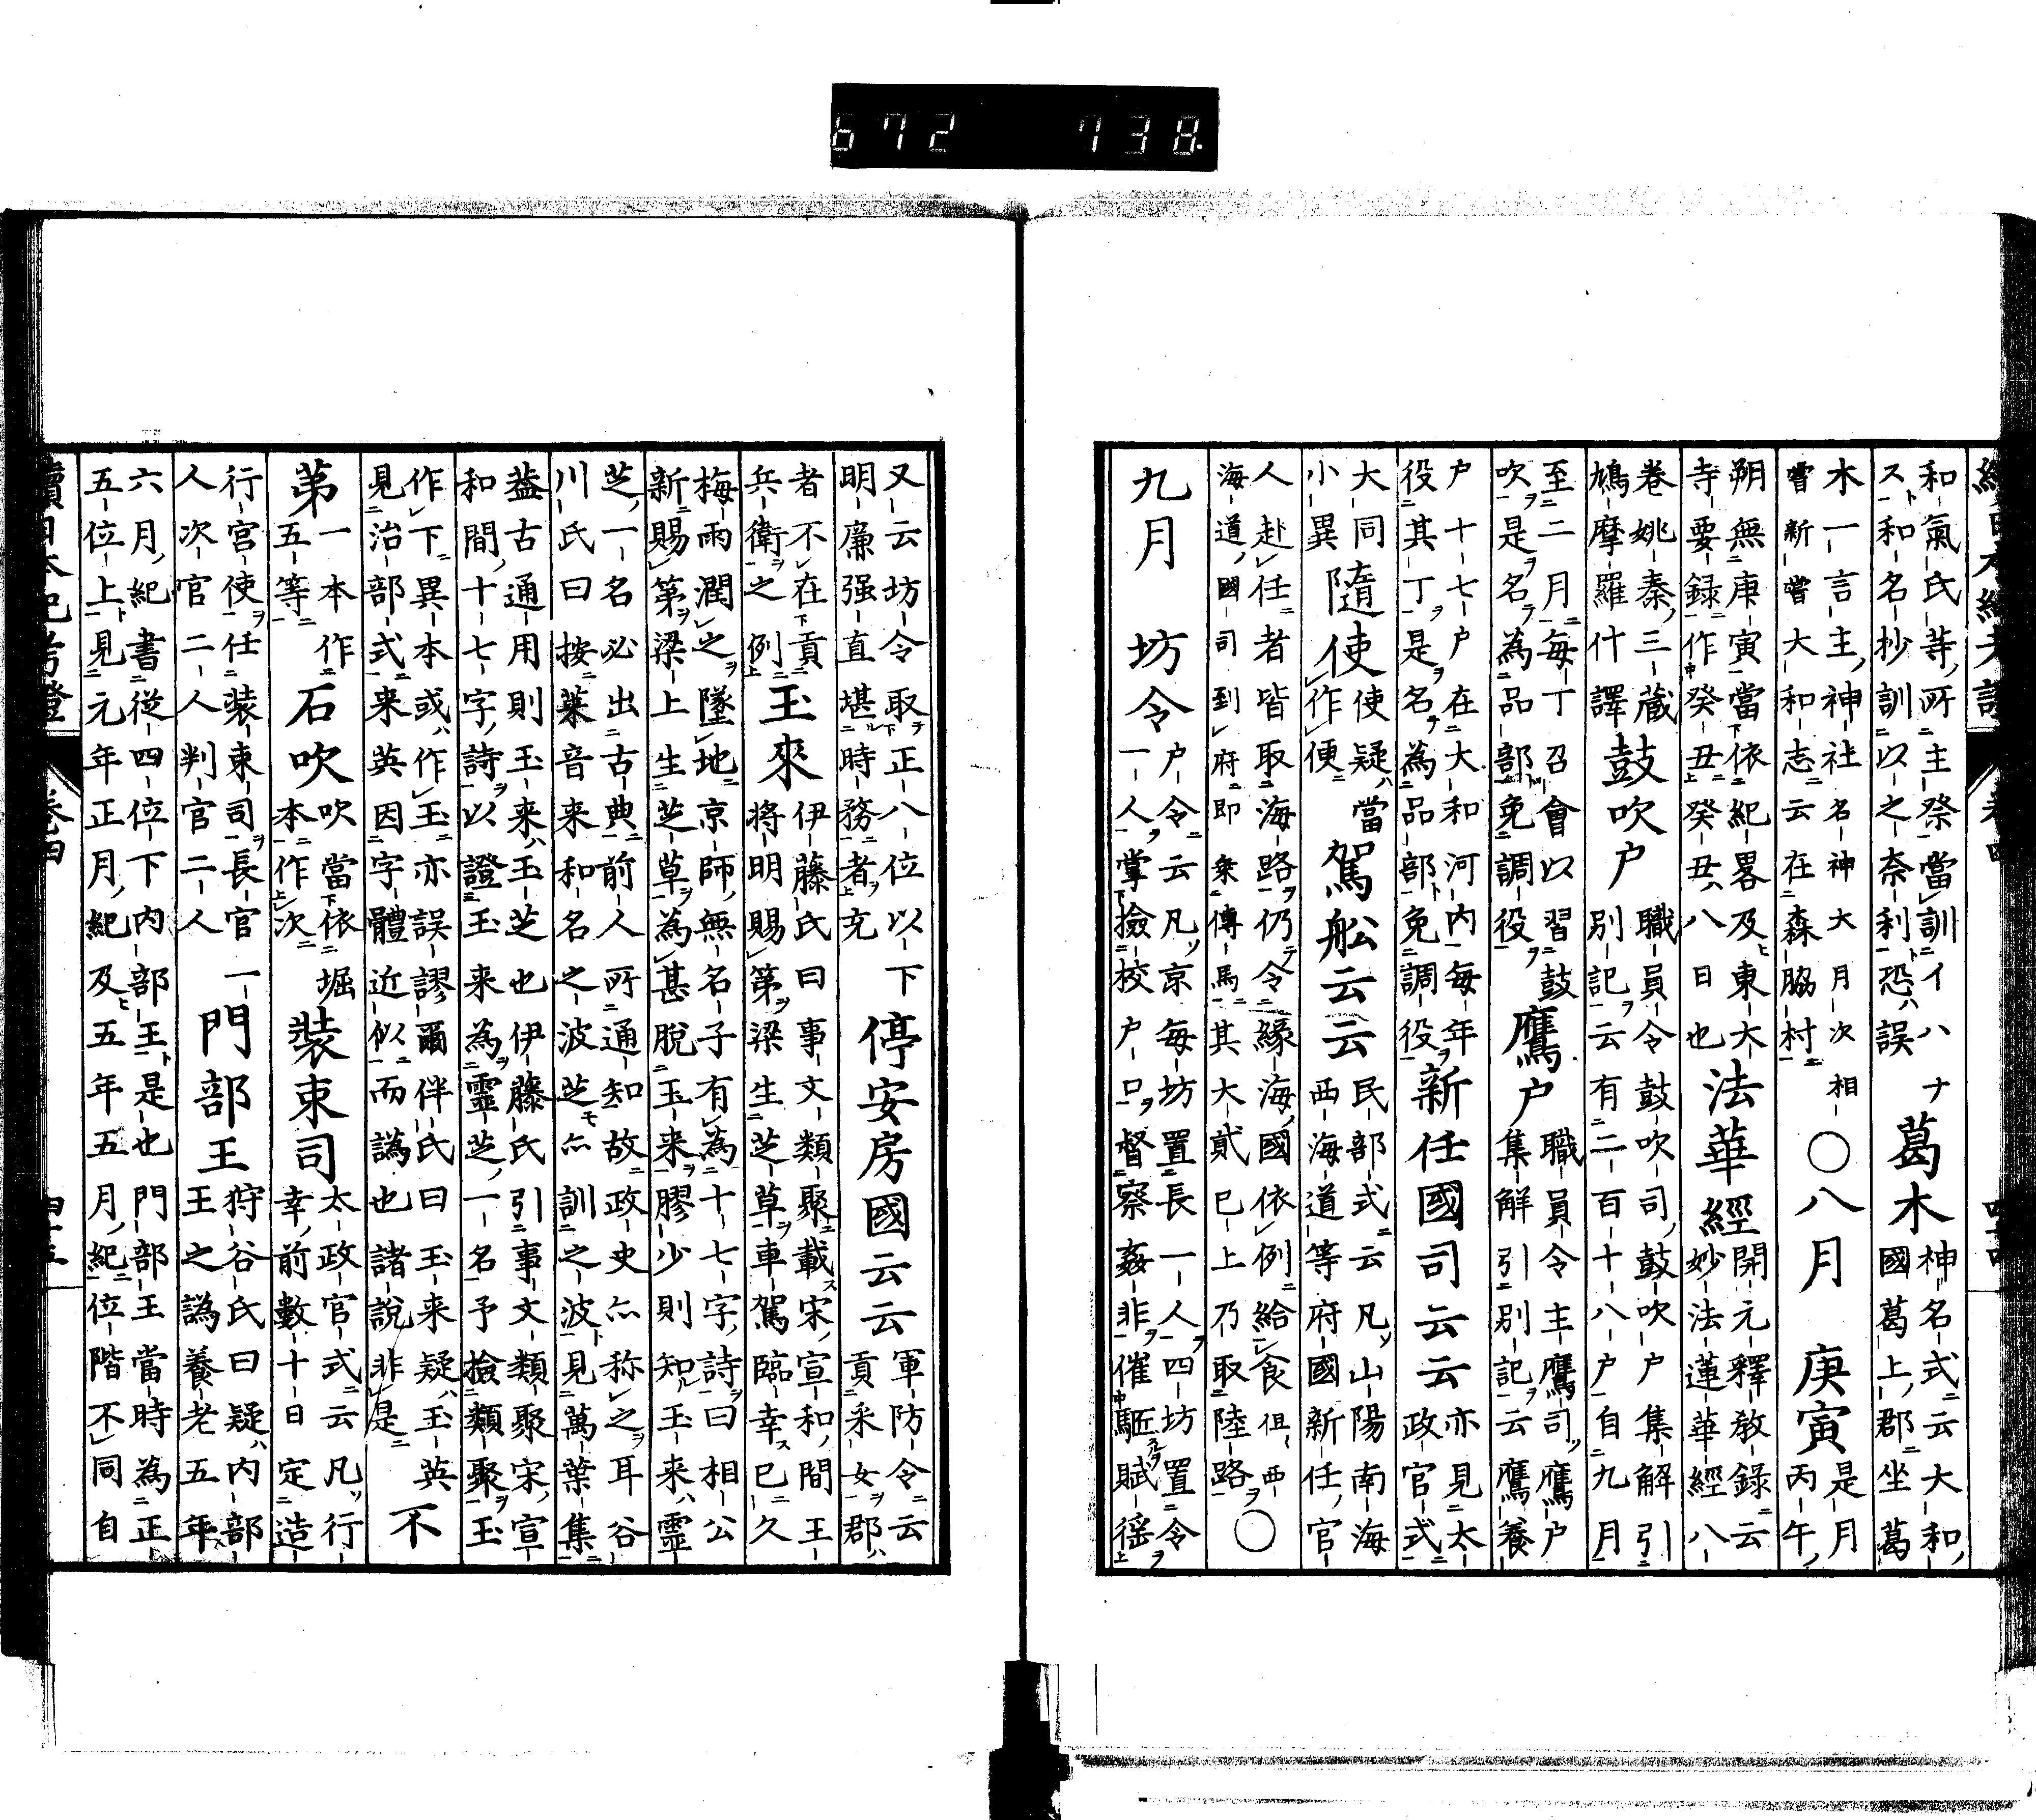 672 738
和氣氏等所主祭當訓イハナ
スト和名抄訓以之奈利恐誤
葛木
神名式云大和
國葛上郡坐葛
木一言主神社名神大月次相
嘗新嘗大和志云在森脇村
○八月
庚寅
是月
丙午
朔無庚寅當依紀畧及東大
寺要録作癸丑癸丑八日也
法華經
開元釋教錄云
妙法蓮華經八
卷姚秦三蔵
鳩摩羅什譯
鼓吹户
職員令鼓吹司鼓吹户集解引
別記云有二百十八户自九月
至二月每丁召會以習鼓
吹是名為品部免調役
鷹户
職員令主鷹司鷹户
集解引別記云鷹養
户十七户在大和河内每年
役其丁是名為品部免調役
新任國司云云
亦見太
政官式
大同
小異
隨使
使疑當
作便
駕船云云
民部式云凡山陽南海
西海道等府國新任官
人赴任者皆取海路仍令緣海國依例給食但西
海道國司到府即乘傳馬其大貳已上乃取陸路
○
九月
坊令
户令云凡京每坊置長一人四坊置令
一人掌撿校户口督察姦非催駈賦徭
又云坊令取正八位以下
明廉强直堪時務者充
停安房國云云
軍防令云
貢采女郡
者不在貢
兵衛之例
玉來
伊藤氏曰事文類聚載宋宣和間王
將明賜第梁生芝草車駕臨幸已久
梅雨潤之墜地京師無名子有為十七字詩曰相公
新賜第梁上生芝草為甚脫玉来膠少則知玉来靈
芝一名必出古典前人所通知故政史亦称之耳谷
川氏曰按葉音来和名之波芝亦訓之波見萬葉集
葢古通用則玉来玉芝也伊藤氏引事文類聚宋宣
和間十七字詩以證玉来為靈芝一名予撿類聚玉
作下異本或作玉亦誤謬爾伴氏曰玉来疑玉英
見治部式来英因字體近似而譌也諸說非是
不
第
一本作
五等
石吹
吹當依堀
本作次
装束司
太政官式云凡行
幸前數十日定造
行宮使任装束司長官一
人次官二人判官二人
門部王
狩谷氏曰疑内部
王之譌養老五年
六月紀書從四位下内部王是也門部王當時為正
五位上見元年正月紀及五年五月紀位階不同自